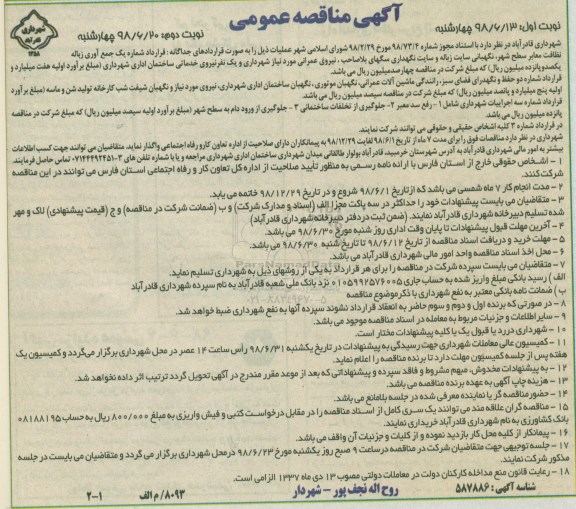 آگهی مناقصه عمومی
نوبت اول: ۹۸/۶/۱۳ چهارشنبه
نوبت دوم: ۹۸/۶/۲۰ چهارشنبه
شهرداری قادرآباد در نظر دارد با استناد مجوز شماره ۹۸/۷۳/۴ مورخ ۹۸/۲/۲۹ شورای اسلامی شهر عملیات ذیل را به صورت قراردادهای جداگانه: قرارداد شماره یک جمع آوری زباله
نظافت معابر سطح شهر، نگهبانی سایت زباله و سایت نگهداری سگهای بلاصاحب، نیروی عمرانی مورد نیاز شهرداری و یک نفر نیروی خدماتی ساختمان اداری شهرداری (مبلغ برآورد اولیه هفت میلیارد و
یکصد و پانزده میلیون ریال) که مبلغ شرکت در مناقصه چهارصد میلیون ریال می باشد.
قرارداد شماره دو حفظ و نگهداری فضای سبز، رانندگی ماشین آلات عمرانی، نگهبان موتوری، نگهبان ساختمان اداری شهرداری، نیروی مورد نیاز و نگهبان شیفت شب کارخانه تولید شن و ماسه (مبلغ برآورد
اولیه پنج میلیارد و پانصد میلیون ریال) که مبلغ شرکت در مناقصه سیصد میلیون ریال می باشد.
قرارداد شماره سه اجرائیات شهرداری شامل ۱- رفع سد معبر ۲- جلوگیری از تخلفات ساختمانی ۳- جلوگیری از ورود دام به سطح شهر (مبلغ برآورد اولیه سیصد میلیون ریال) که مبلغ شرکت در مناقصه
پانزده میلیون ریال می باشد.
در قرارداد شماره ۳ کلیه اشخاص حقیقی و حقوقی می توانند شرکت نمایند.
شهرداری در نظر دارد مناقصات فوق را برای مدت ۷ ماه از تاریخ ۹۸/۶/۱ لغایت ۹۸/۱۲/۲۹ به پیمانکاران دارای صلاحیت از اداره تعاون کار و رفاه اجتماعی واگذار نماید. متقاضیان می توانند جهت کسب اطلاعات
بیشتر به امور مالی شهرداری قادرآباد به آدرس شهرستان خرمبید، قادرآباد بولوار طالقانی میدان شهرداری ساختمان اداری شهرداری مراجعه و یا با شماره تلفن های ۳-۰۷۱۴۴۴۹۲۴۵۱ تماس حاصل فرمایند.
۱ - اشخاص حقوقی خارج از استان فارس با ارائه نامه رسمی به منظور تأیید صلاحیت از اداره کل تعاون کار و رفاه اجتماعی استان فارس می توانند در این مناقصه
شرکت کنند.
۲ - مدت انجام کار ۷ ماه شمسی می باشد که از تاریخ ۹۸/۶/۱ شروع و در تاریخ ۹۸/۱۲/۲۹ خاتمه می یابد.
۳ - متقاضیان می بایست پیشنهادات خود را حداکثر در سه پاکت مجزا الف (اسناد و مدارک شرکت) و ب (ضمانت شرکت در مناقصه) و ج (قیمت پیشنهادی) لاک و مهر
شده تسلیم دبیرخانه شهرداری قادرآباد نمایند. (ضمن ثبت در دفتر دبیرخانه شهرداری قادرآباد)
۴ - آخرین مهلت قبول پیشنهادات تا پایان وقت اداری روز شنبه مورخ ۹۸/۶/۳۰ می باشد.
۵ - مهلت خرید و دریافت اسناد مناقصه از تاریخ ۹۸/۶/۱۲ تا تاریخ شنبه ۹۸/۶/۳۰ می باشد.
۶ - محل اخذ اسناد مناقصه واحد امور مالی شهرداری قادرآباد می باشد.
۷ - متقاضیان می بایست سپرده شرکت در مناقصه را برای هر قرارداد به یکی از روشهای ذیل به شهرداری تسلیم نماید.
الف) رسید بانکی مبلغ واریز شده به حساب جاری ۰۱۰۵۹۹۲۵۷۶۰۰۵ نزد بانک ملی شعبه قادرآباد به نام سپرده شهرداری قادرآباد
ب) ضمانت نامه بانکی معتبر به نفع شهرداری با ذکر موضوع مناقصه
۸ - در صورتی که برنده اول و دوم و سوم حاضر به انعقاد قرارداد نشوند سپرده آنها به نفع شهرداری ضبط خواهد شد.
۹ - سایر اطلاعات و جزئیات مربوط به معامله در اسناد مناقصه موجود می باشد.
۱۰ - شهرداری در رد یا قبول یک یا کلیه پیشنهادات مختار است.
۱۱ - کمیسیون عالی معاملات شهرداری جهت رسیدگی به پیشنهادات در تاریخ یکشنبه ۹۸/۶/۳۱ رأس ساعت ۱۴ عصر در محل شهرداری برگزار می گردد و کمیسیون یک
هفته پس از جلسه کمیسیون مهلت دارد تا برنده مناقصه را اعلام نماید.
۱۲ - به پیشنهادات مخدوش، مبهم مشروط و فاقد سپرده و پیشنهاداتی که بعد از موعد مقرر مندرج در آگهی تحویل گردد ترتیب اثر داده نخواهد شد.
۱۳ - هزینه چاپ آگهی به عهده برنده مناقصه می باشد.
۱۴ - حضور مناقصه گر یا نماینده معرفی شده در جلسه بلامانع می باشد.
۱۵ - مناقصه گران علاقه مند می توانند یک سری کامل از اسناد مناقصه را در مقابل درخواست کتبی و فیش واریزی به مبلغ ۸۰۰/۰۰۰ ریال به حساب ۰۸۱۸۸۱۹۵
بانک کشاورزی به نام شهرداری قادرآباد خریداری نمایند.
۱۶ - پیمانکار از کلیه محل کار بازدید نموده و از کلیات و جزئیات آن واقف می باشد.
۱۷ - جلسه توجیهی جهت متقاضیان شرکت در مناقصه در ساعت ۹ صبح روز یکشنبه مورخ ۹۸/۶/۲۳ در محل شهرداری برگزار می گردد و متقاضیان می بایست در جلسه
مذکور شرکت نمایند.
۱۸ - رعایت قانون منع مداخله کارکنان دولت در معاملات دولتی مصوب ۱۳ دی ماه ۱۳۳۷ الزامی است.
شناسه آگهی: ۵۸۷۸۸۶
روح اله نجف پور - شهردار
۸۰۹۳/م الف
۲-۱